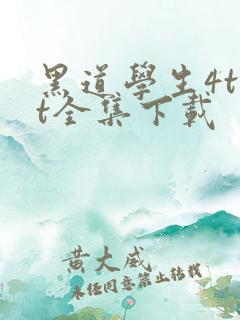 黑道學生4t
t全集下載
黃大威
未経同意禁止轉載